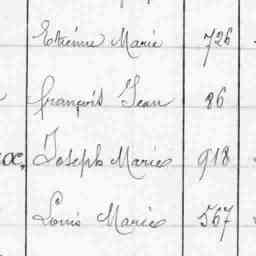 Etienne Marie 726
françois Jean 86
Joseph Marie 918
Louis Marie 567